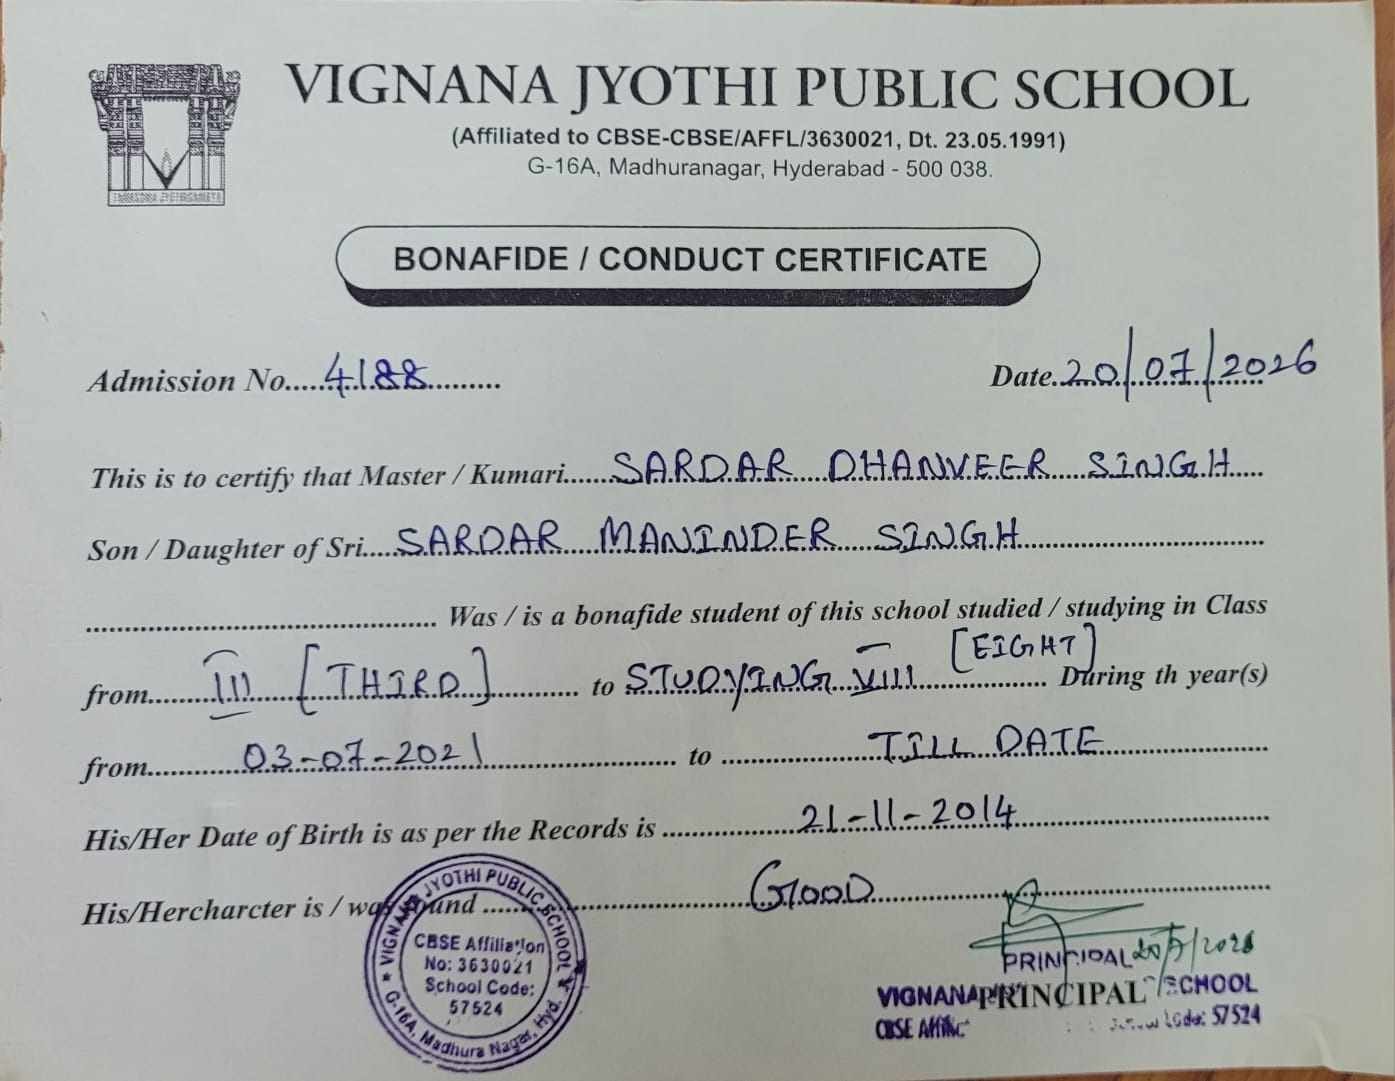 VIGNANA JYOTHI PUBLIC SCHOOL
(Affiliated to CBSE-CBSE/AFFL/3630021, Dt. 23.05.1991)
G-16A, Madhuranagar, Hyderabad - 500 038.
BONAFIDE / CONDUCT CERTIFICATE
Admission No.....4188..........
Date.20/07/2026
This is to certify that Master / Kumari......SARDAR DHANVEER SINGH.....
Son / Daughter of Sri....SARDAR MANINDER SINGH..........
.......... Was / is a bonafide student of this school studied / studying in Class
from.......III [THIRD].......... to STUDYING VIII [EIGHT].......... During th year(s)
from..........03-07-2021.......... to ..........TILL DATE..........
His/Her Date of Birth is as per the Records is ..........21-11-2014..........
His/Hercharcter is / was found ..........GOOD..........
VIGNANA JYOTHI PUBLIC SCHOOL
CBSE Affiliation
No: 3630021
School Code:
57524
G-16A, Madhura Nagar, Hyd.
PRINCIPAL 20/7/2026
VIGNANA SCHOOL
PRINCIPAL
CBSE Code: 57524